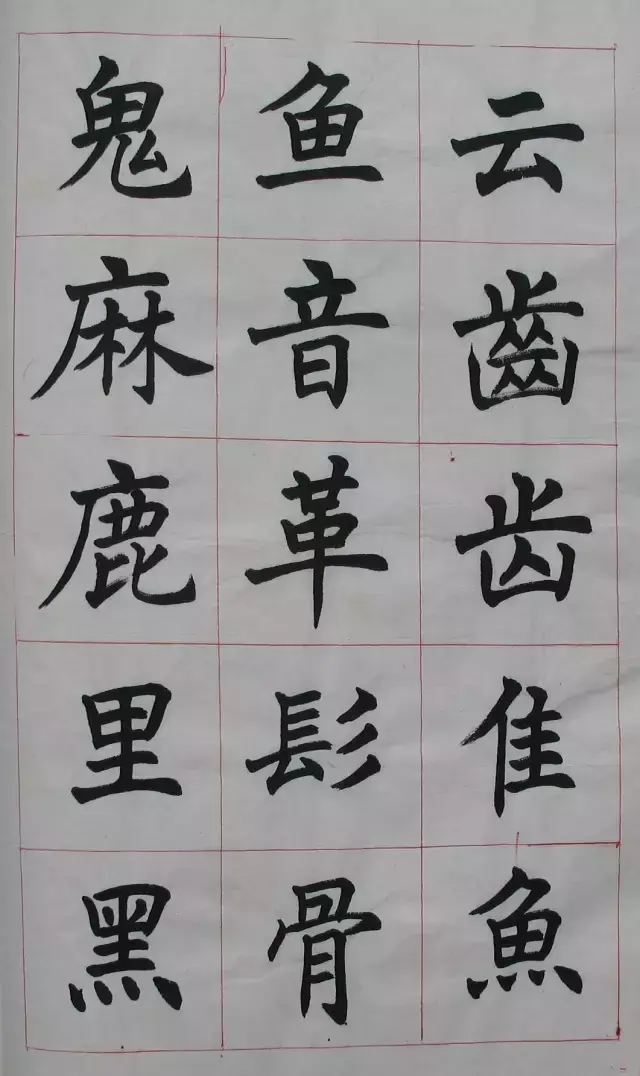 云齒齿隹魚
鱼音革髟骨
鬼麻鹿里黑